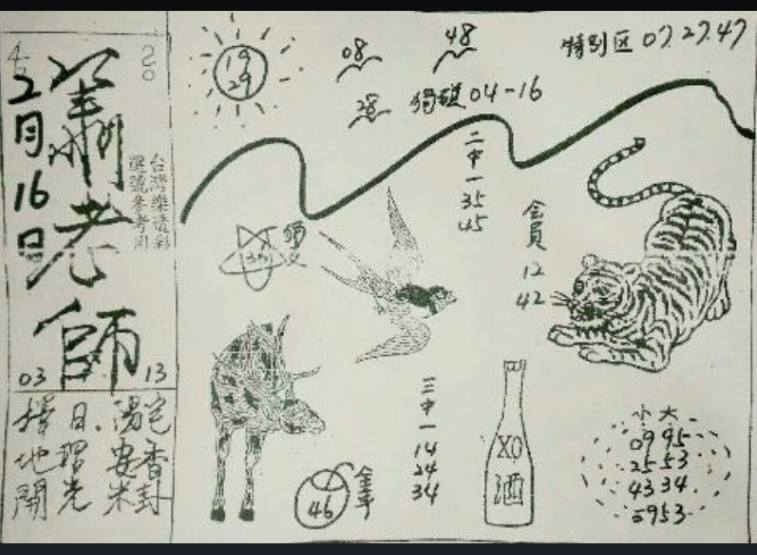 20
蕭老師
2月16日
台灣樂透彩
選號參考用
03 13
宅香封
湯安米
日.瑠光
擇地開
19
29
08
48
28
特別区 07.27.47
獨碰 04-16
二中一 35 45
会員 12 42
三中一 14 24 34
46
XO
酒
小 大
09 95
25 53
43 34
5953